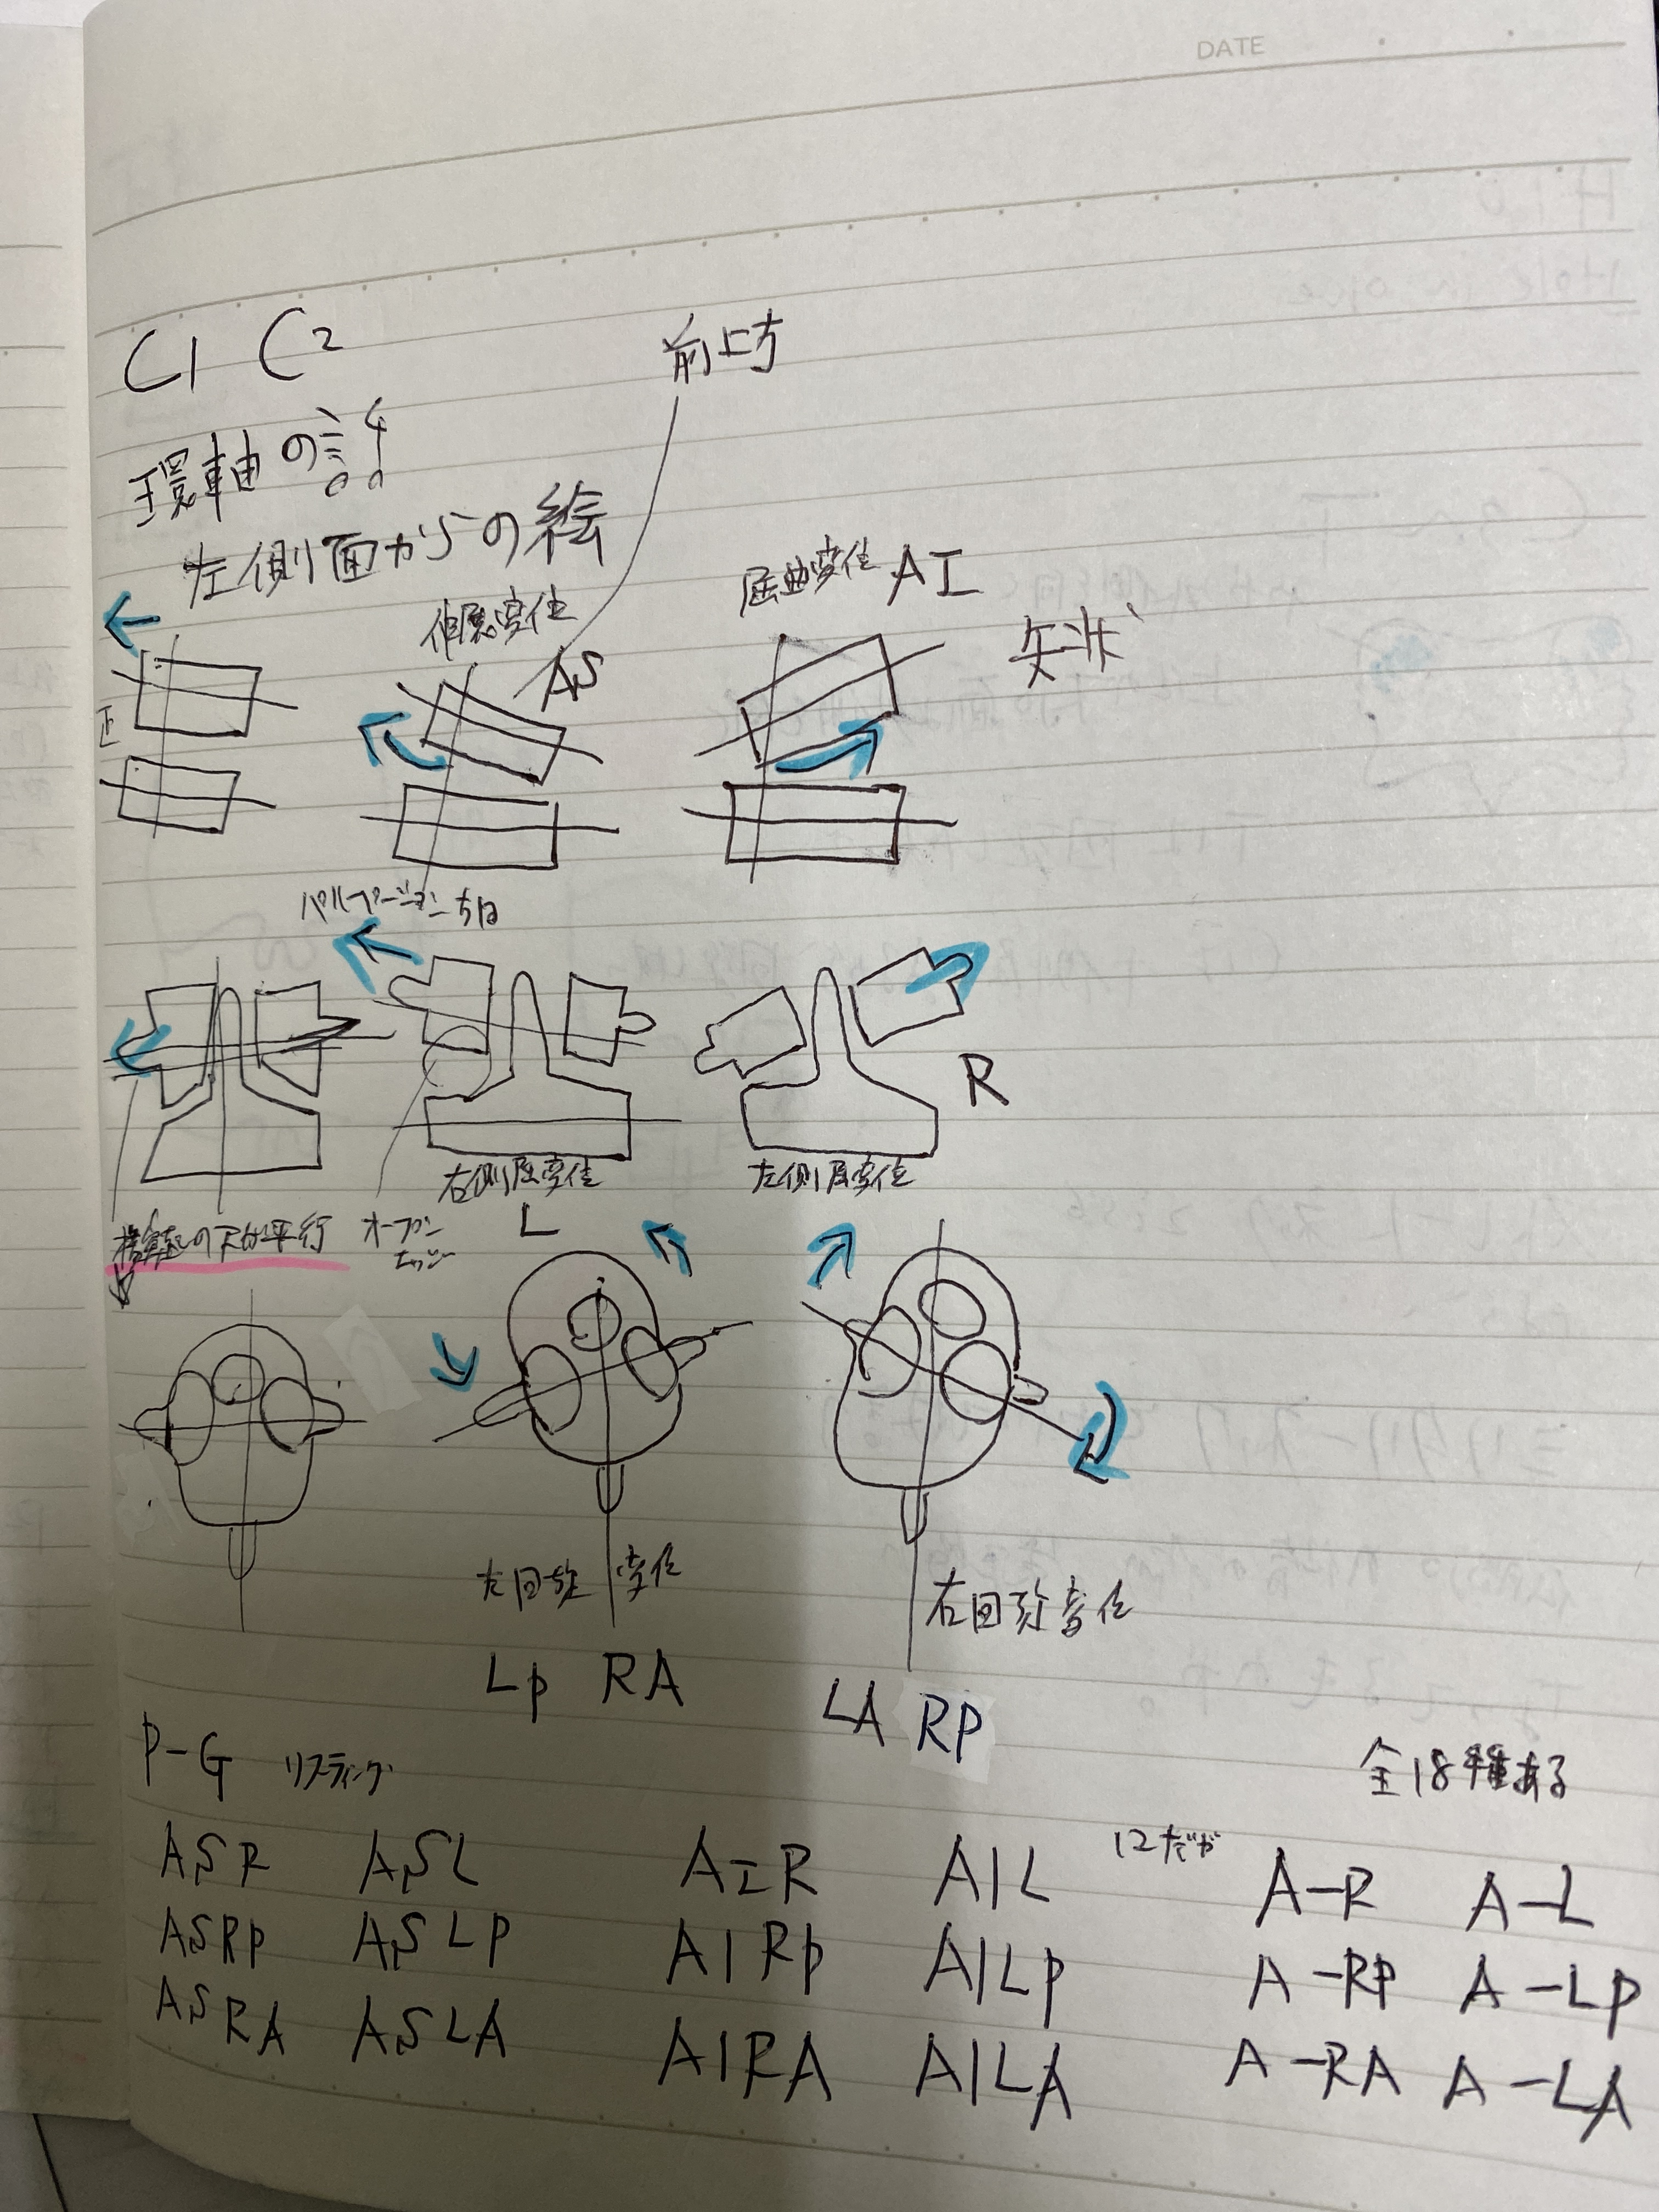 DATE
C1 C2
前上方
環軸の話
左側面からの絵
伸展変位
屈曲変位 AI
AS
矢状
正
パルペーション方向
R
右側屈変位
左側屈変位
横突起の下が平行
オープン
L
左回旋変位
右回旋変位
Lp RA
LA RP
P-G リスティング
全18種ある
12だが
ASR ASL AIR AIL A-R A-L
ASRp ASLP AIRp AILp A-RP A-LP
ASRA ASLA AIRA AILA A-RA A-LA